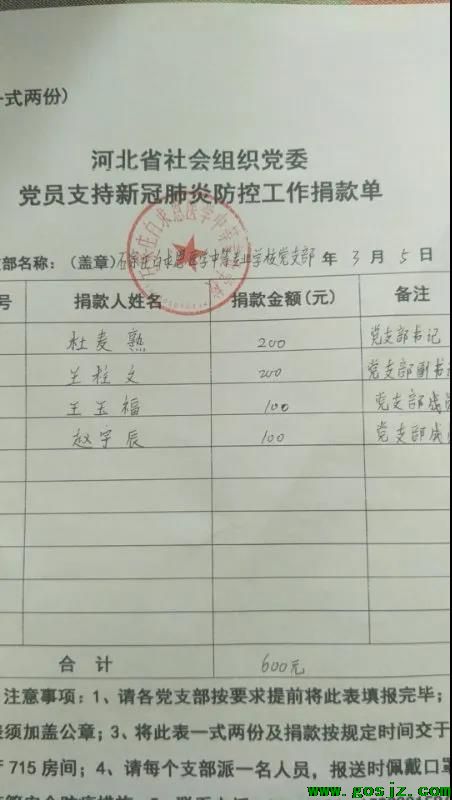 一式两份)
河北省社会组织党委
党员支持新冠肺炎防控工作捐款单
部名称：(盖章)石家庄白求恩医学中等专业学校党支部 年 3 月 5 日
号 捐款人姓名 捐款金额(元) 备注
杜麦熟 200 党支部书记
王柱文 200 党支部副书
王玉福 100 党支部成员
赵宇辰 100 党支部成
合 计 600元
注意事项：1、请各党支部按要求提前将此表填报完毕；
须加盖公章；3、将此表一式两份及捐款按规定时间交于
715 房间；4、请每个支部派一名人员，报送时佩戴口罩
www.gosjz.com